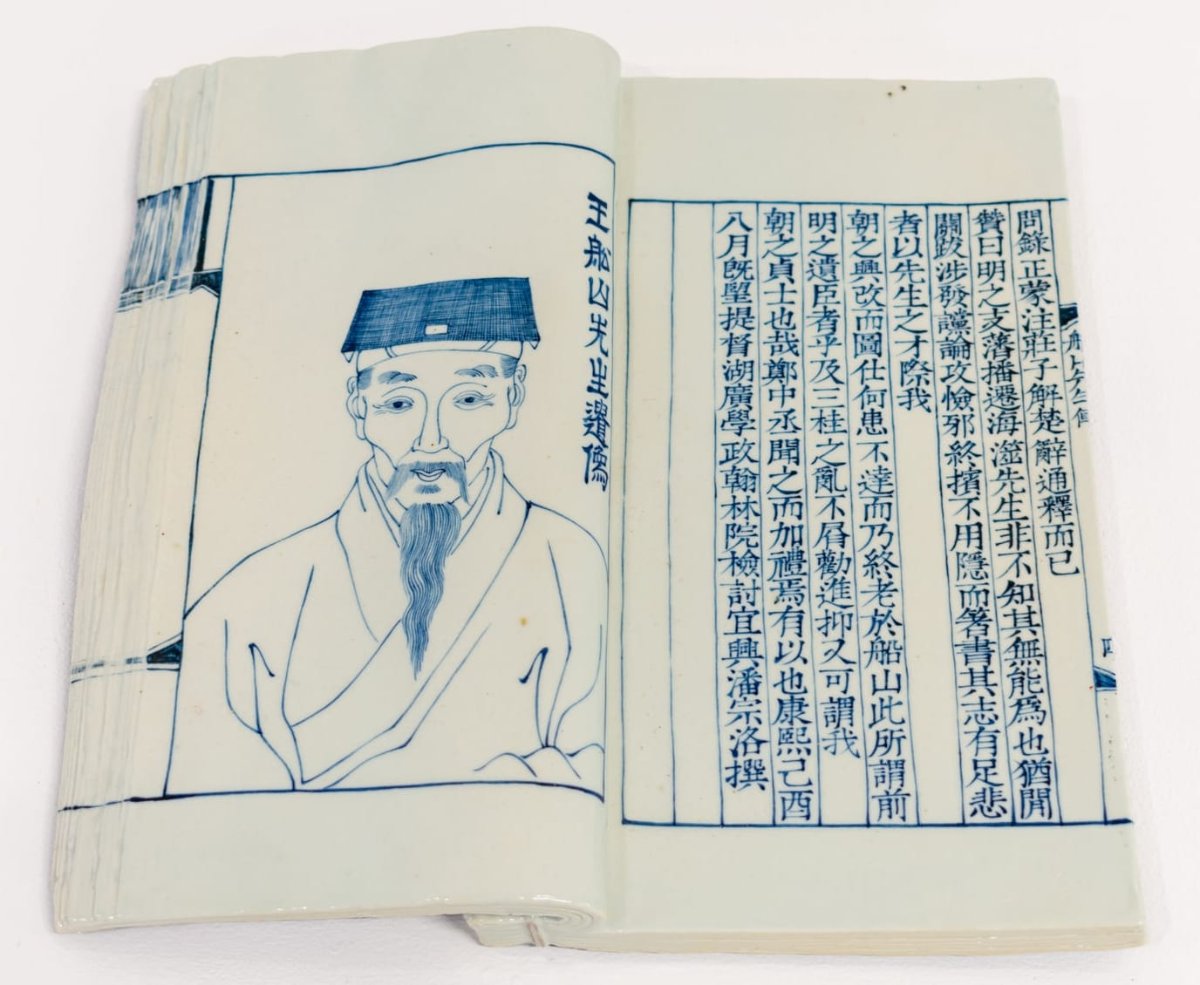 船山先生傳
問錄正蒙注莊子解楚辭通釋而已
贊曰明之支藩播遷海澨先生非不知其無能爲也猶閒
關跋涉發讜論攻憸邪終擯不用隱而箸書其志有足悲
者以先生之才際我
朝之興改而圖仕何患不達而乃終老於船山此所謂前
明之遺臣者乎及三桂之亂不屑勸進抑又可謂我
朝之貞士也哉鄭中丞聞之而加禮焉有以也康熙己酉
八月旣望提督湖廣學政翰林院檢討宜興潘宗洛撰
王船山先生遺像